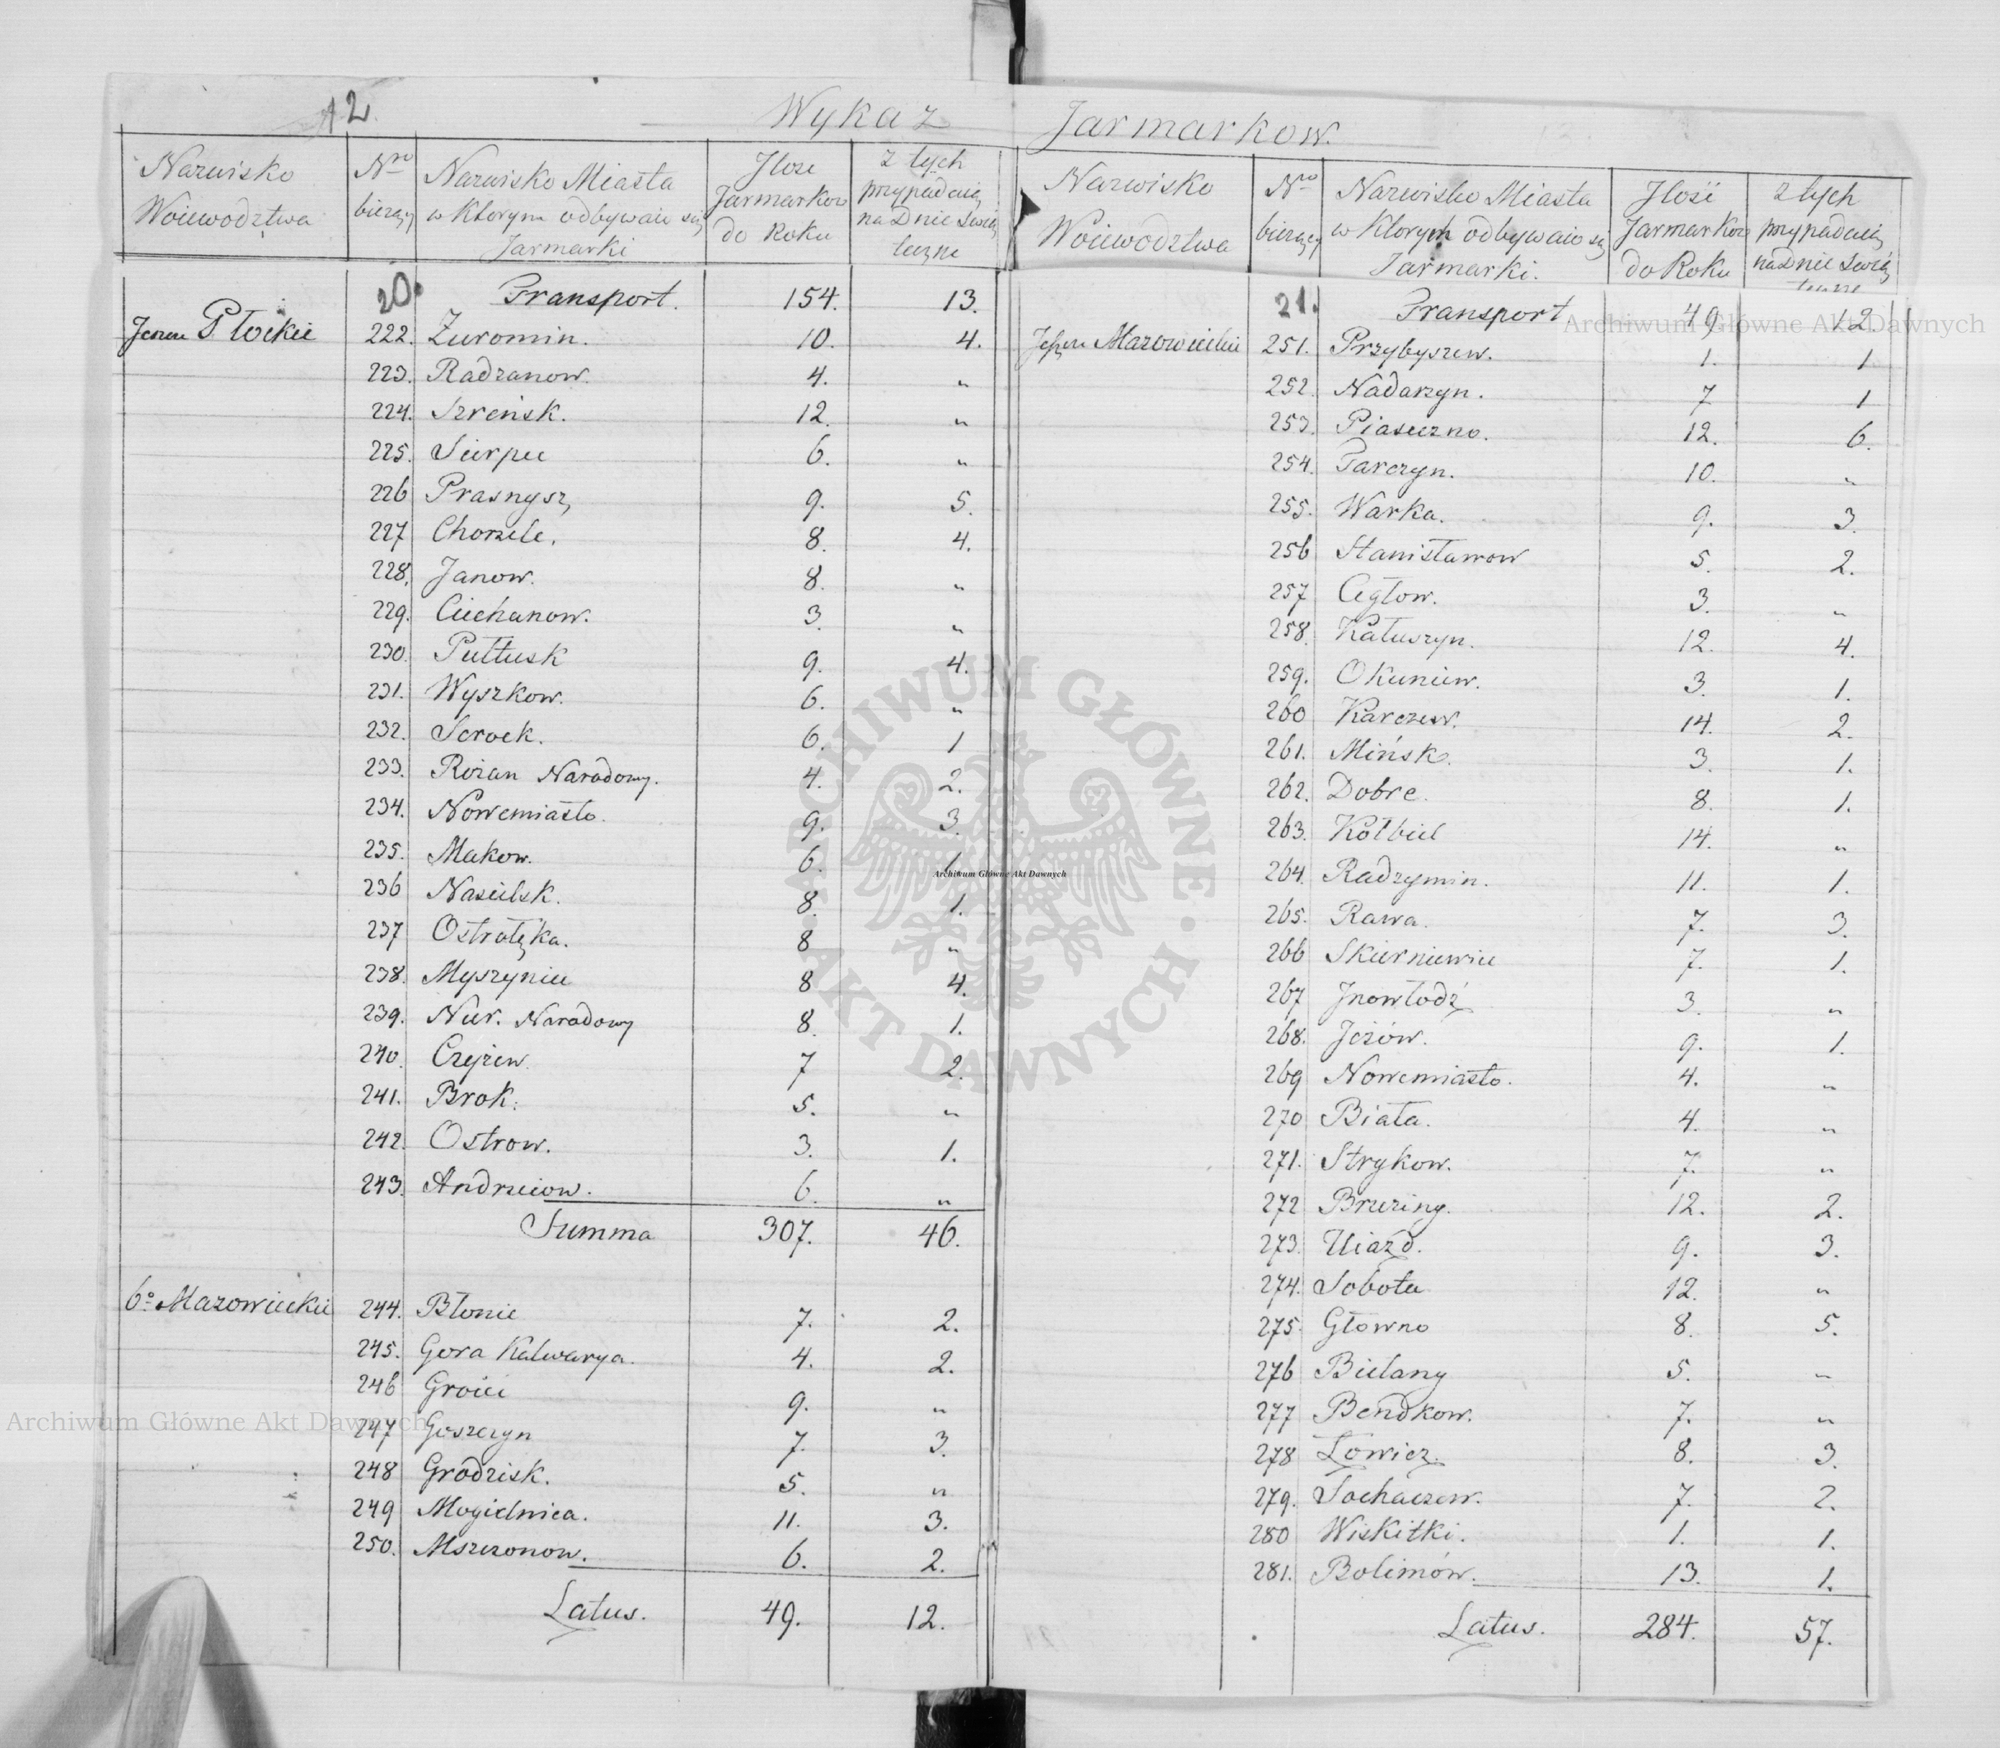 12.
Wykaz Jarmarkow.
Nazwisko Woiewodztwa
Nro bieżący
Nazwisko Miasta w Ktorym odbywaią się Jarmarki
Jlosc Jarmarkow do Roku
z tych przypadaią na Dnie Swią teczne
20.
Transport. 154. 13.
Jeszcze Płockie 222. Zuromin. 10. 4.
223. Radzanow. 4. „
224. Szreńsk. 12. „
225. Sierpce 6. „
226 Prasnysz, 9. 5.
227 Chorzele. 8. 4.
228. Janow. 8. „
229. Ciechanow. 3. „
230. Pułtusk 9. 4.
231. Wyszkow. 6. „
232. Serock. 6. 1
233. Rożan Naradowy. 4. 2.
234. Nowemiasto. 9. 3.
235. Makow. 6. 1.
236 Nasielsk. 8. 1.
237 Ostrołęka. 8 „
238. Myszyniec 8 4.
239. Nur. Naradowy 8. 1.
240. Czyżew. 7 2.
241. Brok. 5. „
242. Ostrow. 3. 1.
243. Andrzeiow. 6. „
Summa 307. 46.
6o Mazowieckie 244. Błonie 7. 2.
245. Gora Kalwarya. 4. 2.
246 Groiec 9. „
247 Goszczyn 7. 3.
248 Grodzisk. 5. „
249 Mogielnica. 11. 3.
250. Mszczonow. 6. 2.
Latus. 49. 12.
Nazwisko Woiewodztwa
Nro bieżący
Nazwisko Miasta w Ktorych odbywaią się Jarmarki.
Jlość Jarmarkow do Roku
z tych przypadaią na Dnie Swią teczne
21.
Transport 49. 12.
Jeszcze Mazowieckie 251. Przybyszew. 1. 1
252. Nadarzyn. 7 1
253. Piaseczno. 12. 6.
254. Tarczyn. 10. „
255. Warka. 9. 3.
256 Stanisławow 5. 2.
257 Cegłow. 3. „
258. Kałuszyn. 12. 4.
259. Okuniew. 3. 1.
260 Karczew. 14. 2.
261. Mińsk. 3. 1.
262. Dobre. 8. 1.
263. Kołbiel 14. „
264. Radzymin. 11. 1.
265. Rawa. 7. 3.
266 Skierniewice 7. 1.
267 Jnowłodź 3. „
268. Jeżów. 9. 1.
269 Nowemiasto. 4. „
270 Biała. 4. „
271. Strykow. 7. „
272 Brzeziny. 12. 2.
273. Uiazd. 9. 3.
274. Sobota 12. „
275. Głowno 8. 5.
276 Bielany 5. „
277 Bendkow. 7. „
278 Łowicz. 8. 3.
279. Sochaczew. 7. 2.
280 Wiskitki. 1. 1.
281. Bolimów. 13. 1.
Latus. 284. 57.
Archiwum Główne Akt Dawnych
Archiwum Główne Akt Dawnych
Archiwum Główne Akt Dawnych
ARCHIWUM GŁÓWNE · AKT DAWNYCH ·